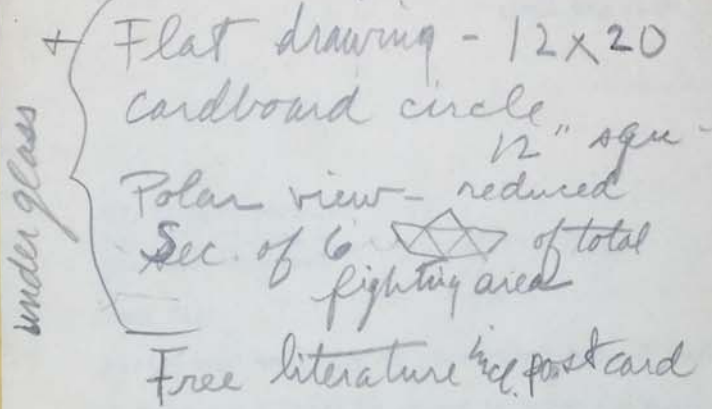 + Flat drawing - 12 x 20
cardboard circle
12" squ -
Polar view - reduced
Sec. of 6 of total
fighting area
under glass
Free literature incl. postcard